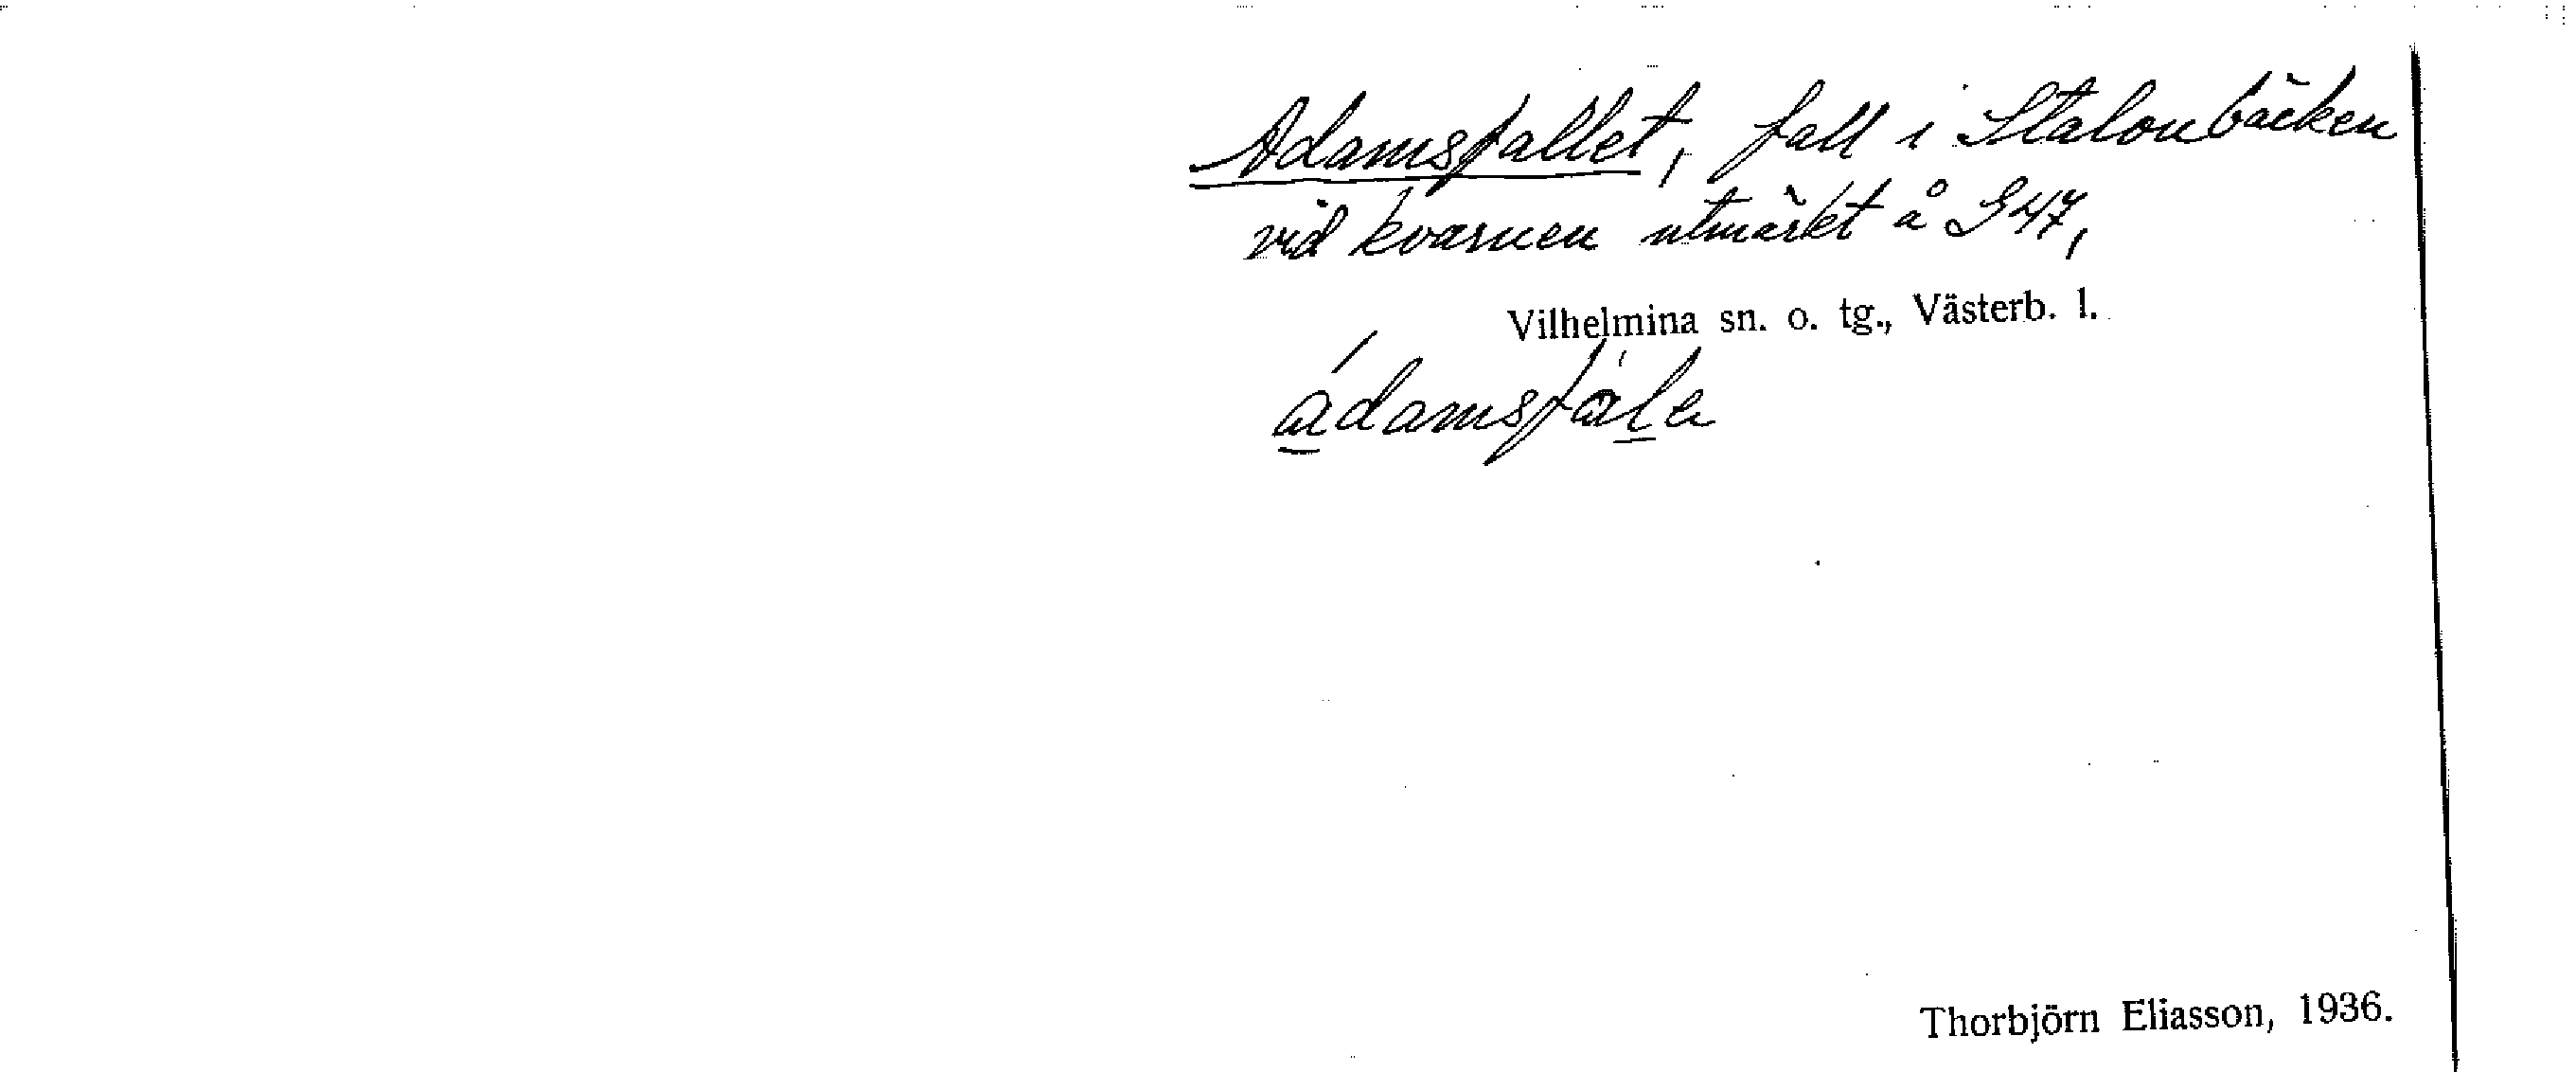 Adamsfallet, fall i Stalonbäcken
vid kvarnen utmärkt å S47,
Vilhelmina sn. o. tg., Västerb. l.
ádamsfàle
Thorbjörn Eliasson, 1936.